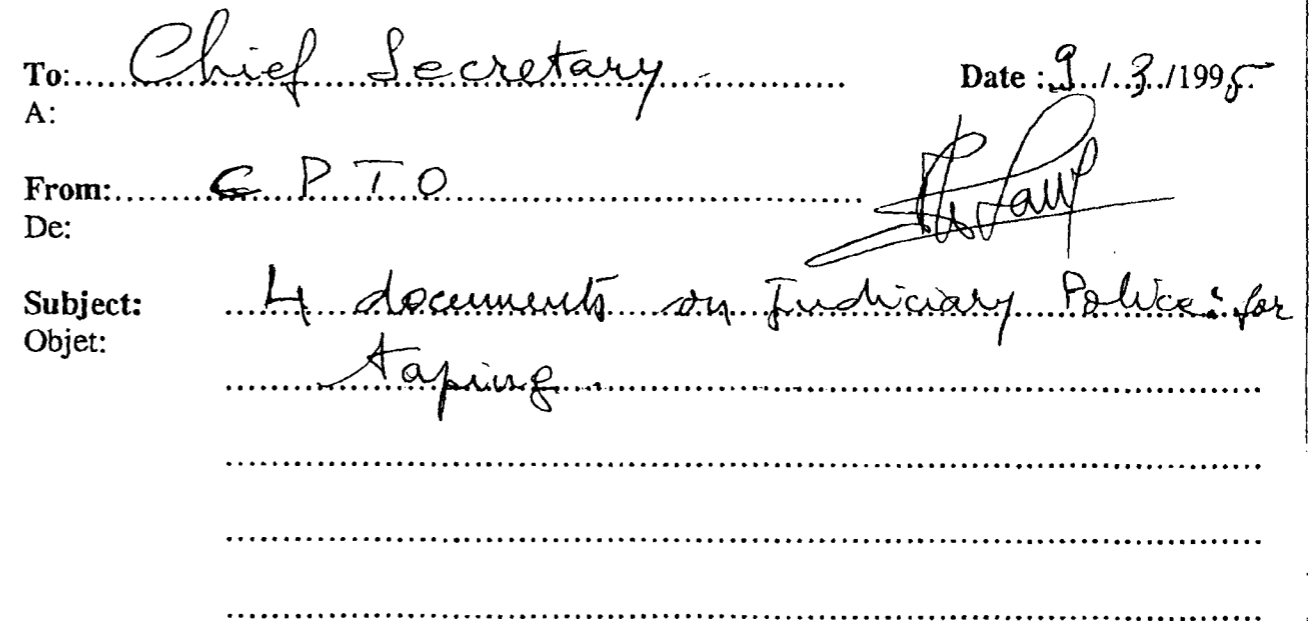 To: Chief Secretary Date : 9/3/1995
A:
From: C P T O
De:
Subject: 4 documents on Judiciary Police: for
Objet:
taping